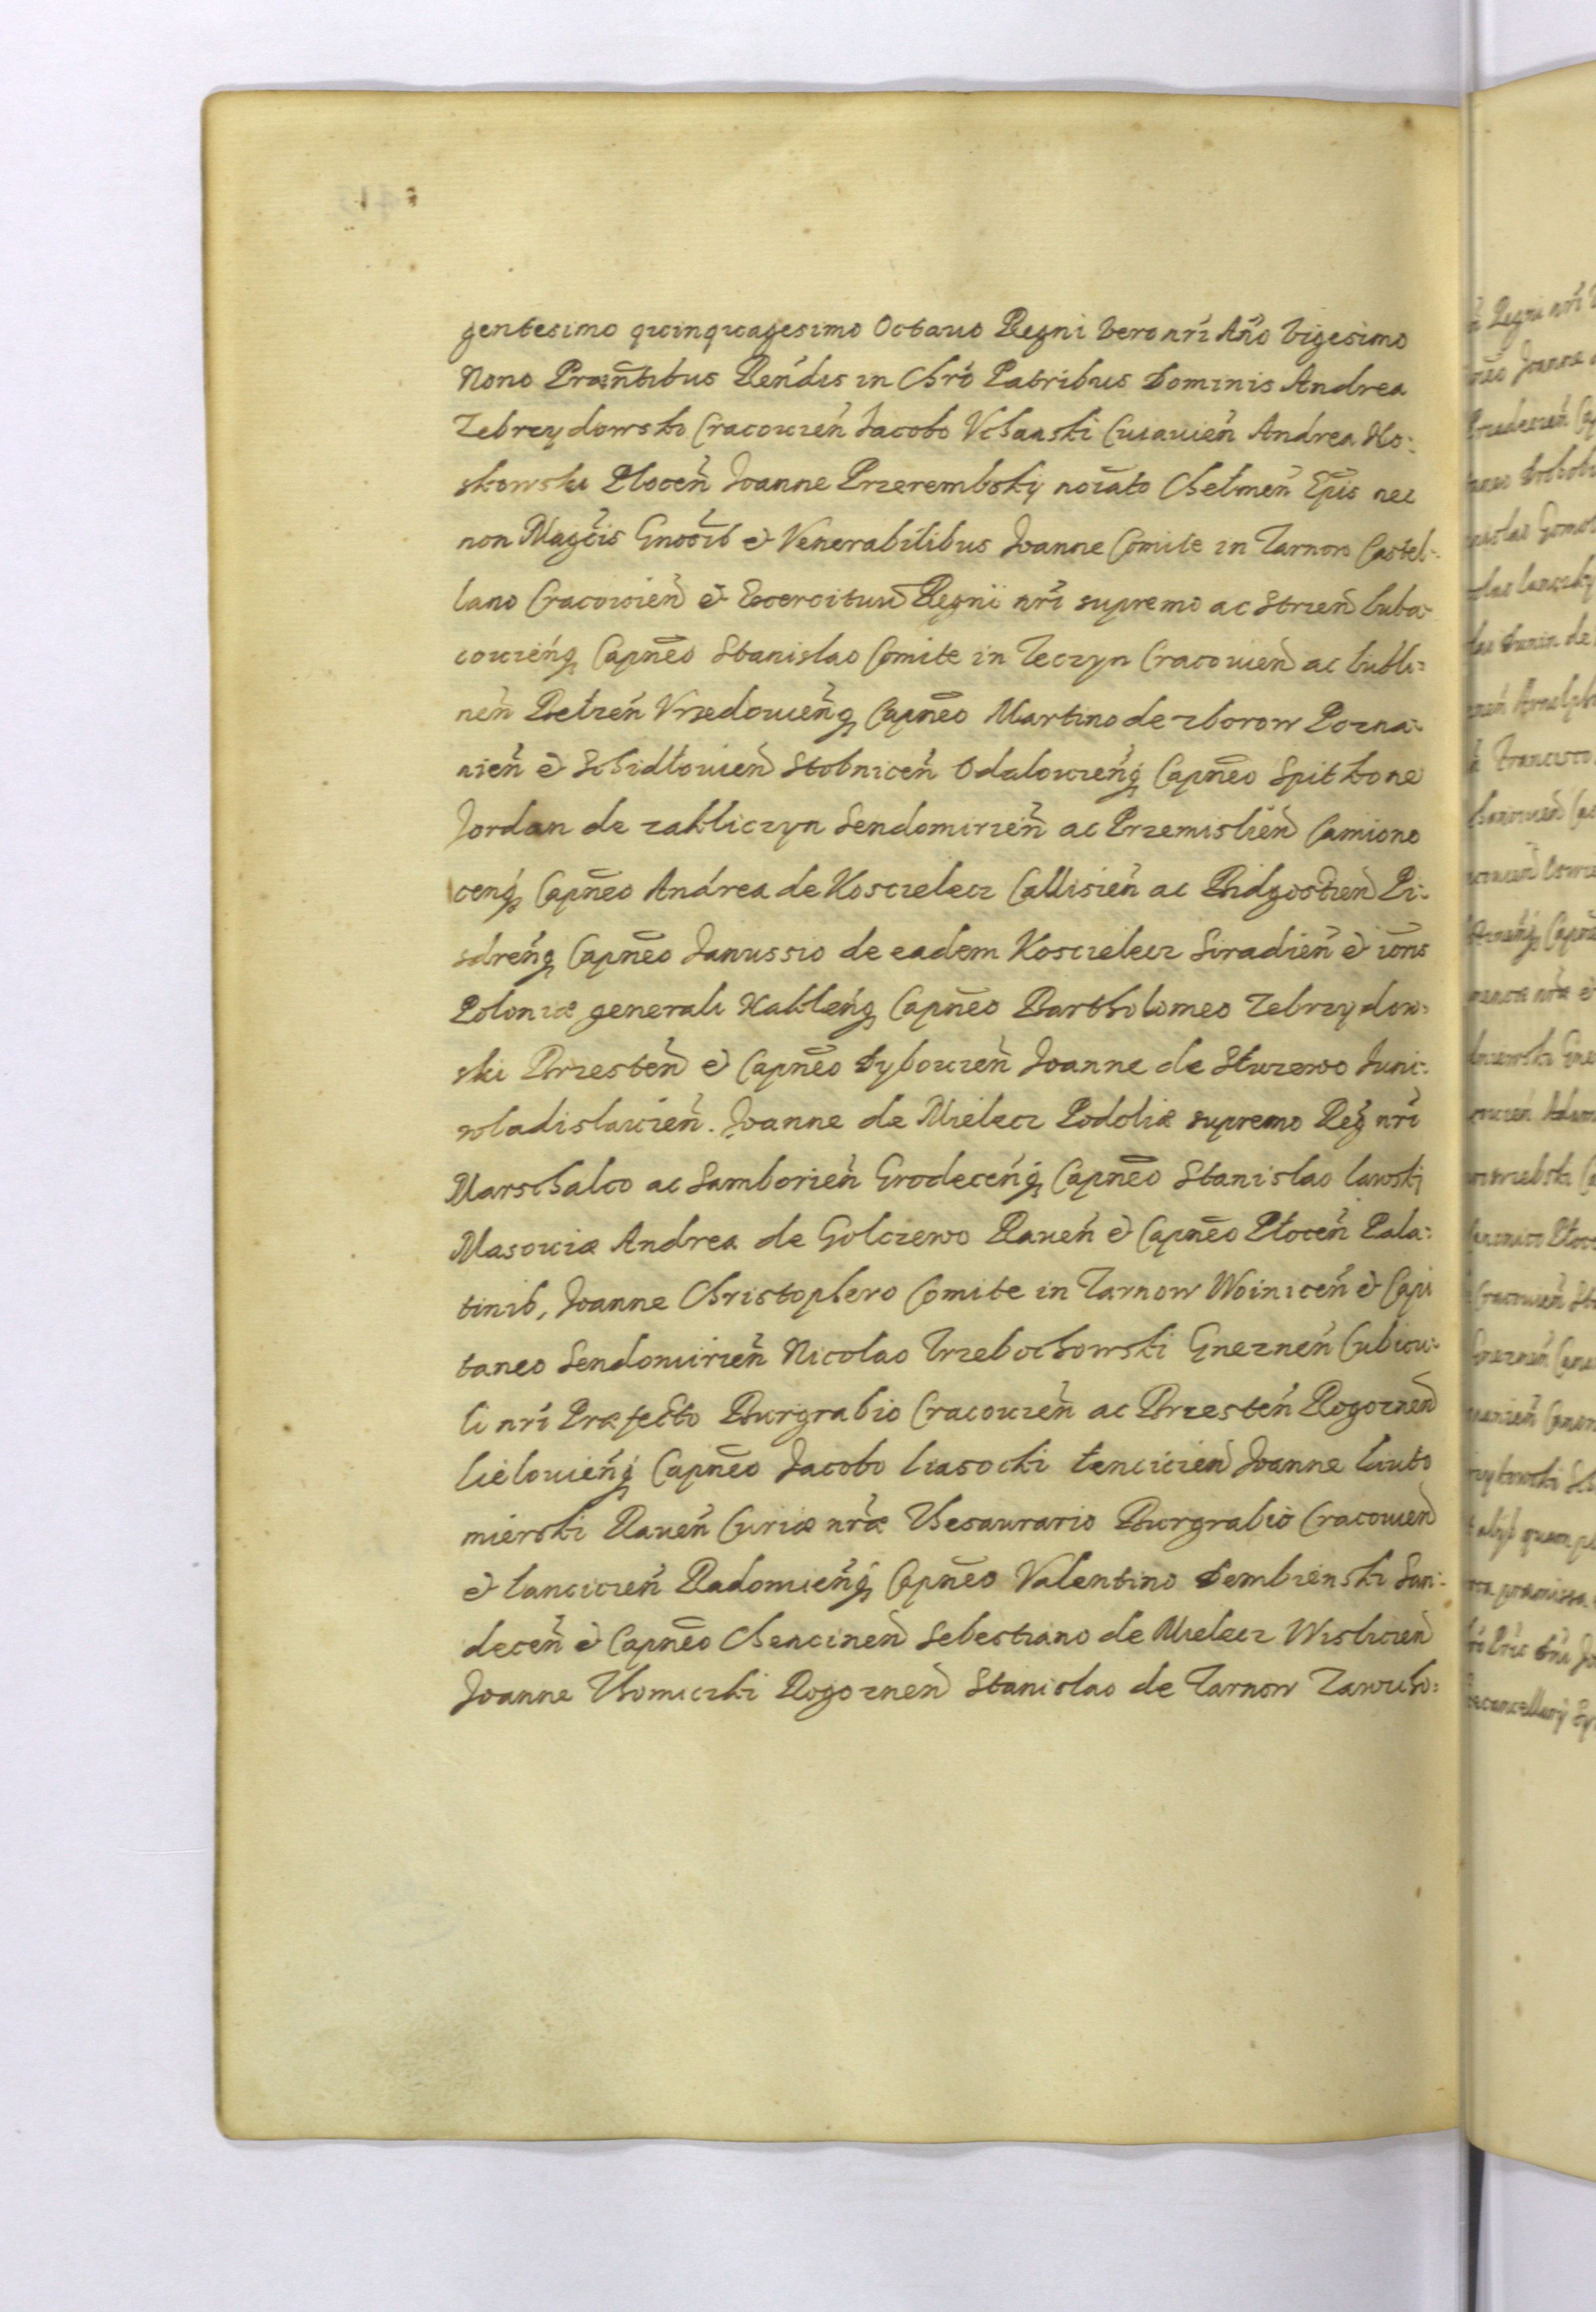 gentesimo quinquagesimo Octauo Regni Vero nrĩ Año Vigesimo
Nono Præñtibus Reńdis in Chrõ Patribus Dominis Andrea
Zebrzydowski Cracouień Jacobo Vchanski Cuiauień Andrea No:
skowski Płoceń Joanne Przerembsky noĩato Chełmeń Epis nec
non Magcis Gnosib et Venerabilibus Joanne Comite in Tarnow Castel:
lano Cracouień et Exercituū Regni nrĩ supremo ac Strień Luba:
couieńq Capñeo Stanislao Comite in Teczyn Cracouień ac Lubli:
neń Bełzeń Vrzedouieńq Capñeo Martino de Zborow Pozna:
nień et Schidłouień Stobniceń Odalouieńq Capñeo Spitkone
Jordan de Zakliczyn Sendomirień ac Przemislień Camione
ceńq Capñeo Andrea de Koscielecz Callisień ac Bidgostień Pi:
sdreńq Capñeo Janussio de eadem Koscielecz Siradień et iõris
Poloniæ generali Nakleńq Capñeo Bartholomeo Zebrzydow:
ski Brzesteń et Capñeo Dybouień Joanne de Słuzewo Juni:
wladislauień. Joanne de Mielecz Podoliæ supremo Reg nrĩ
Marschalco ac Samborień Grodeceńq Capñeo Stanislao Lawski
Masouiæ Andrea de Golczewo Raueń et Capñeo Płoceń Pala:
tinib, Joanne Christophero Comite in Tarnow Woiniceń et Capi
taneo Sendomirień Nicolao Trzebuchowski Gnezneń Cubicu:
li nrĩ Præfecto Burgrabio Cracouień ac Brzesteń Rogozneń
Lielouieńq Capñeo Jacobo Liasocki Łencicień Joanne Liuto
mierski Raueń Curiæ nræ Thesaurario Burgrabio Cracouień
et Lancicień Radomieńq Capñeo Valentino Dembienski San:
deceń et Capñeo Chencineń Sebestiano de Mielecz Wislicień
Joanne Thomiczki Rogozneń Stanislao de Tarnow Zawicho: